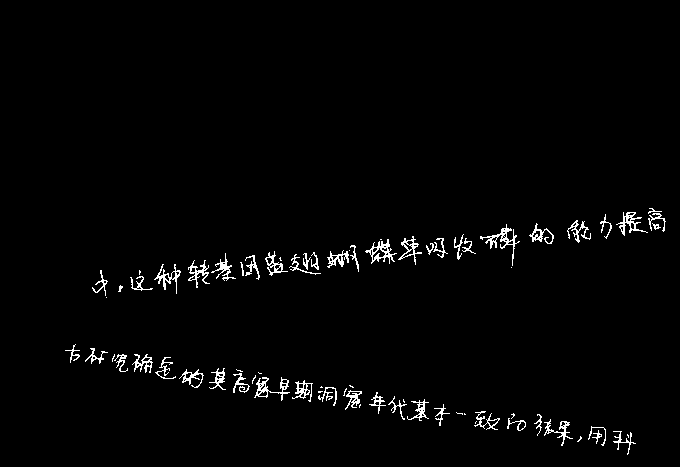 中,这种转基因蓝翅蝴蝶草吸收磷的能力提高
古研究确定的莫高窟早期洞窟年代基本一致的结果,用科